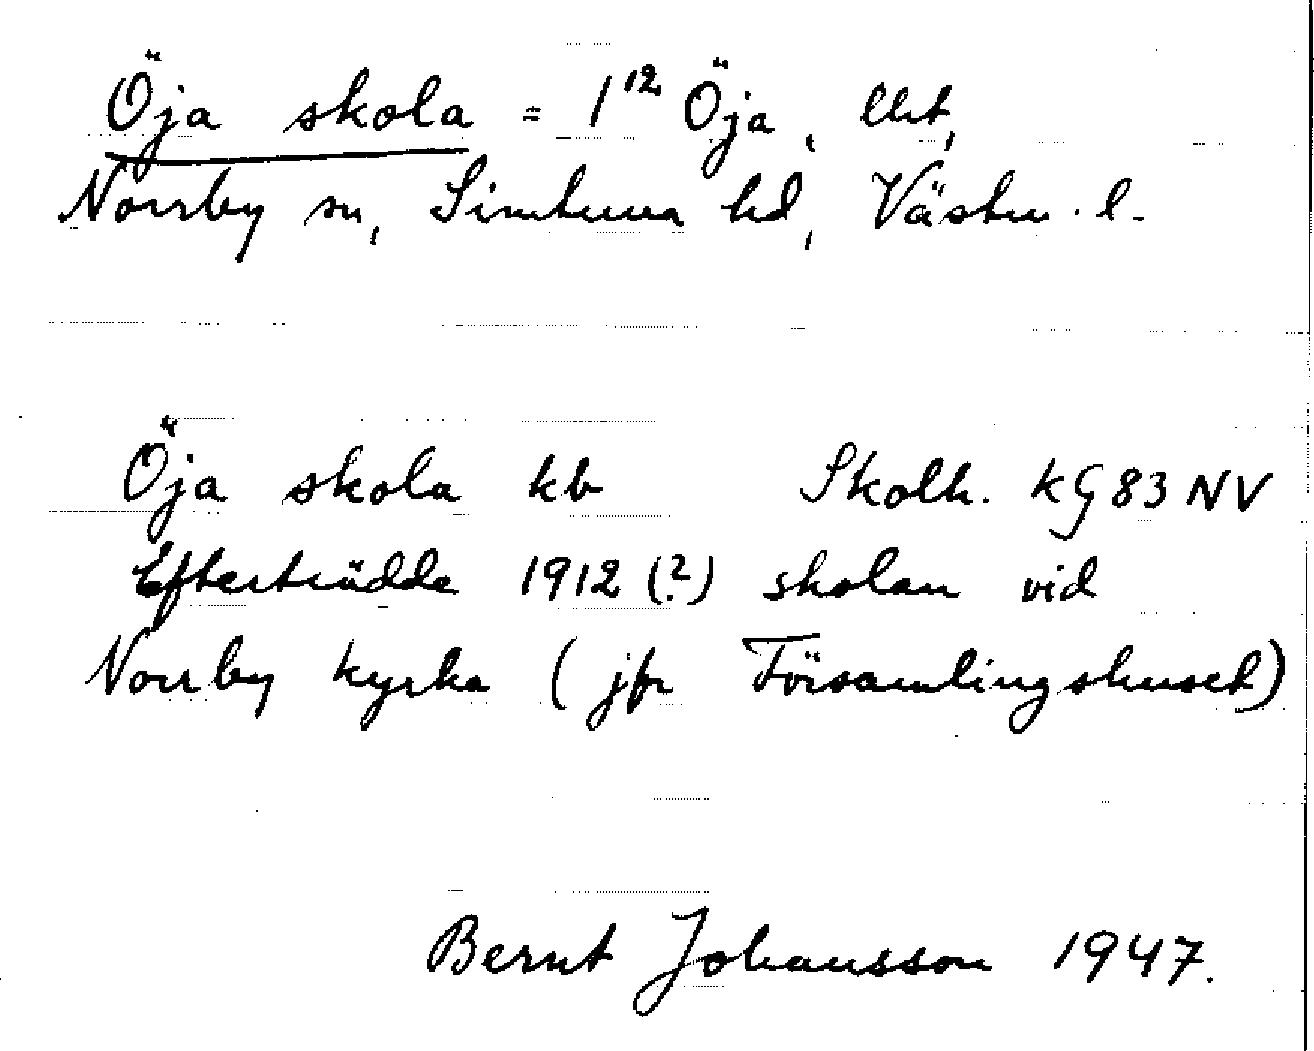 Öja skola = 1¹² Öja,
Norrby sn, Simtuna hd, Västm. l.
Öja skola kb Skolh. kG 83 NV
Efterträdde 1912 (?) skolan vid
Norrby kyrka (jfr Församlingshuset)
Bernt Johansson 1947.